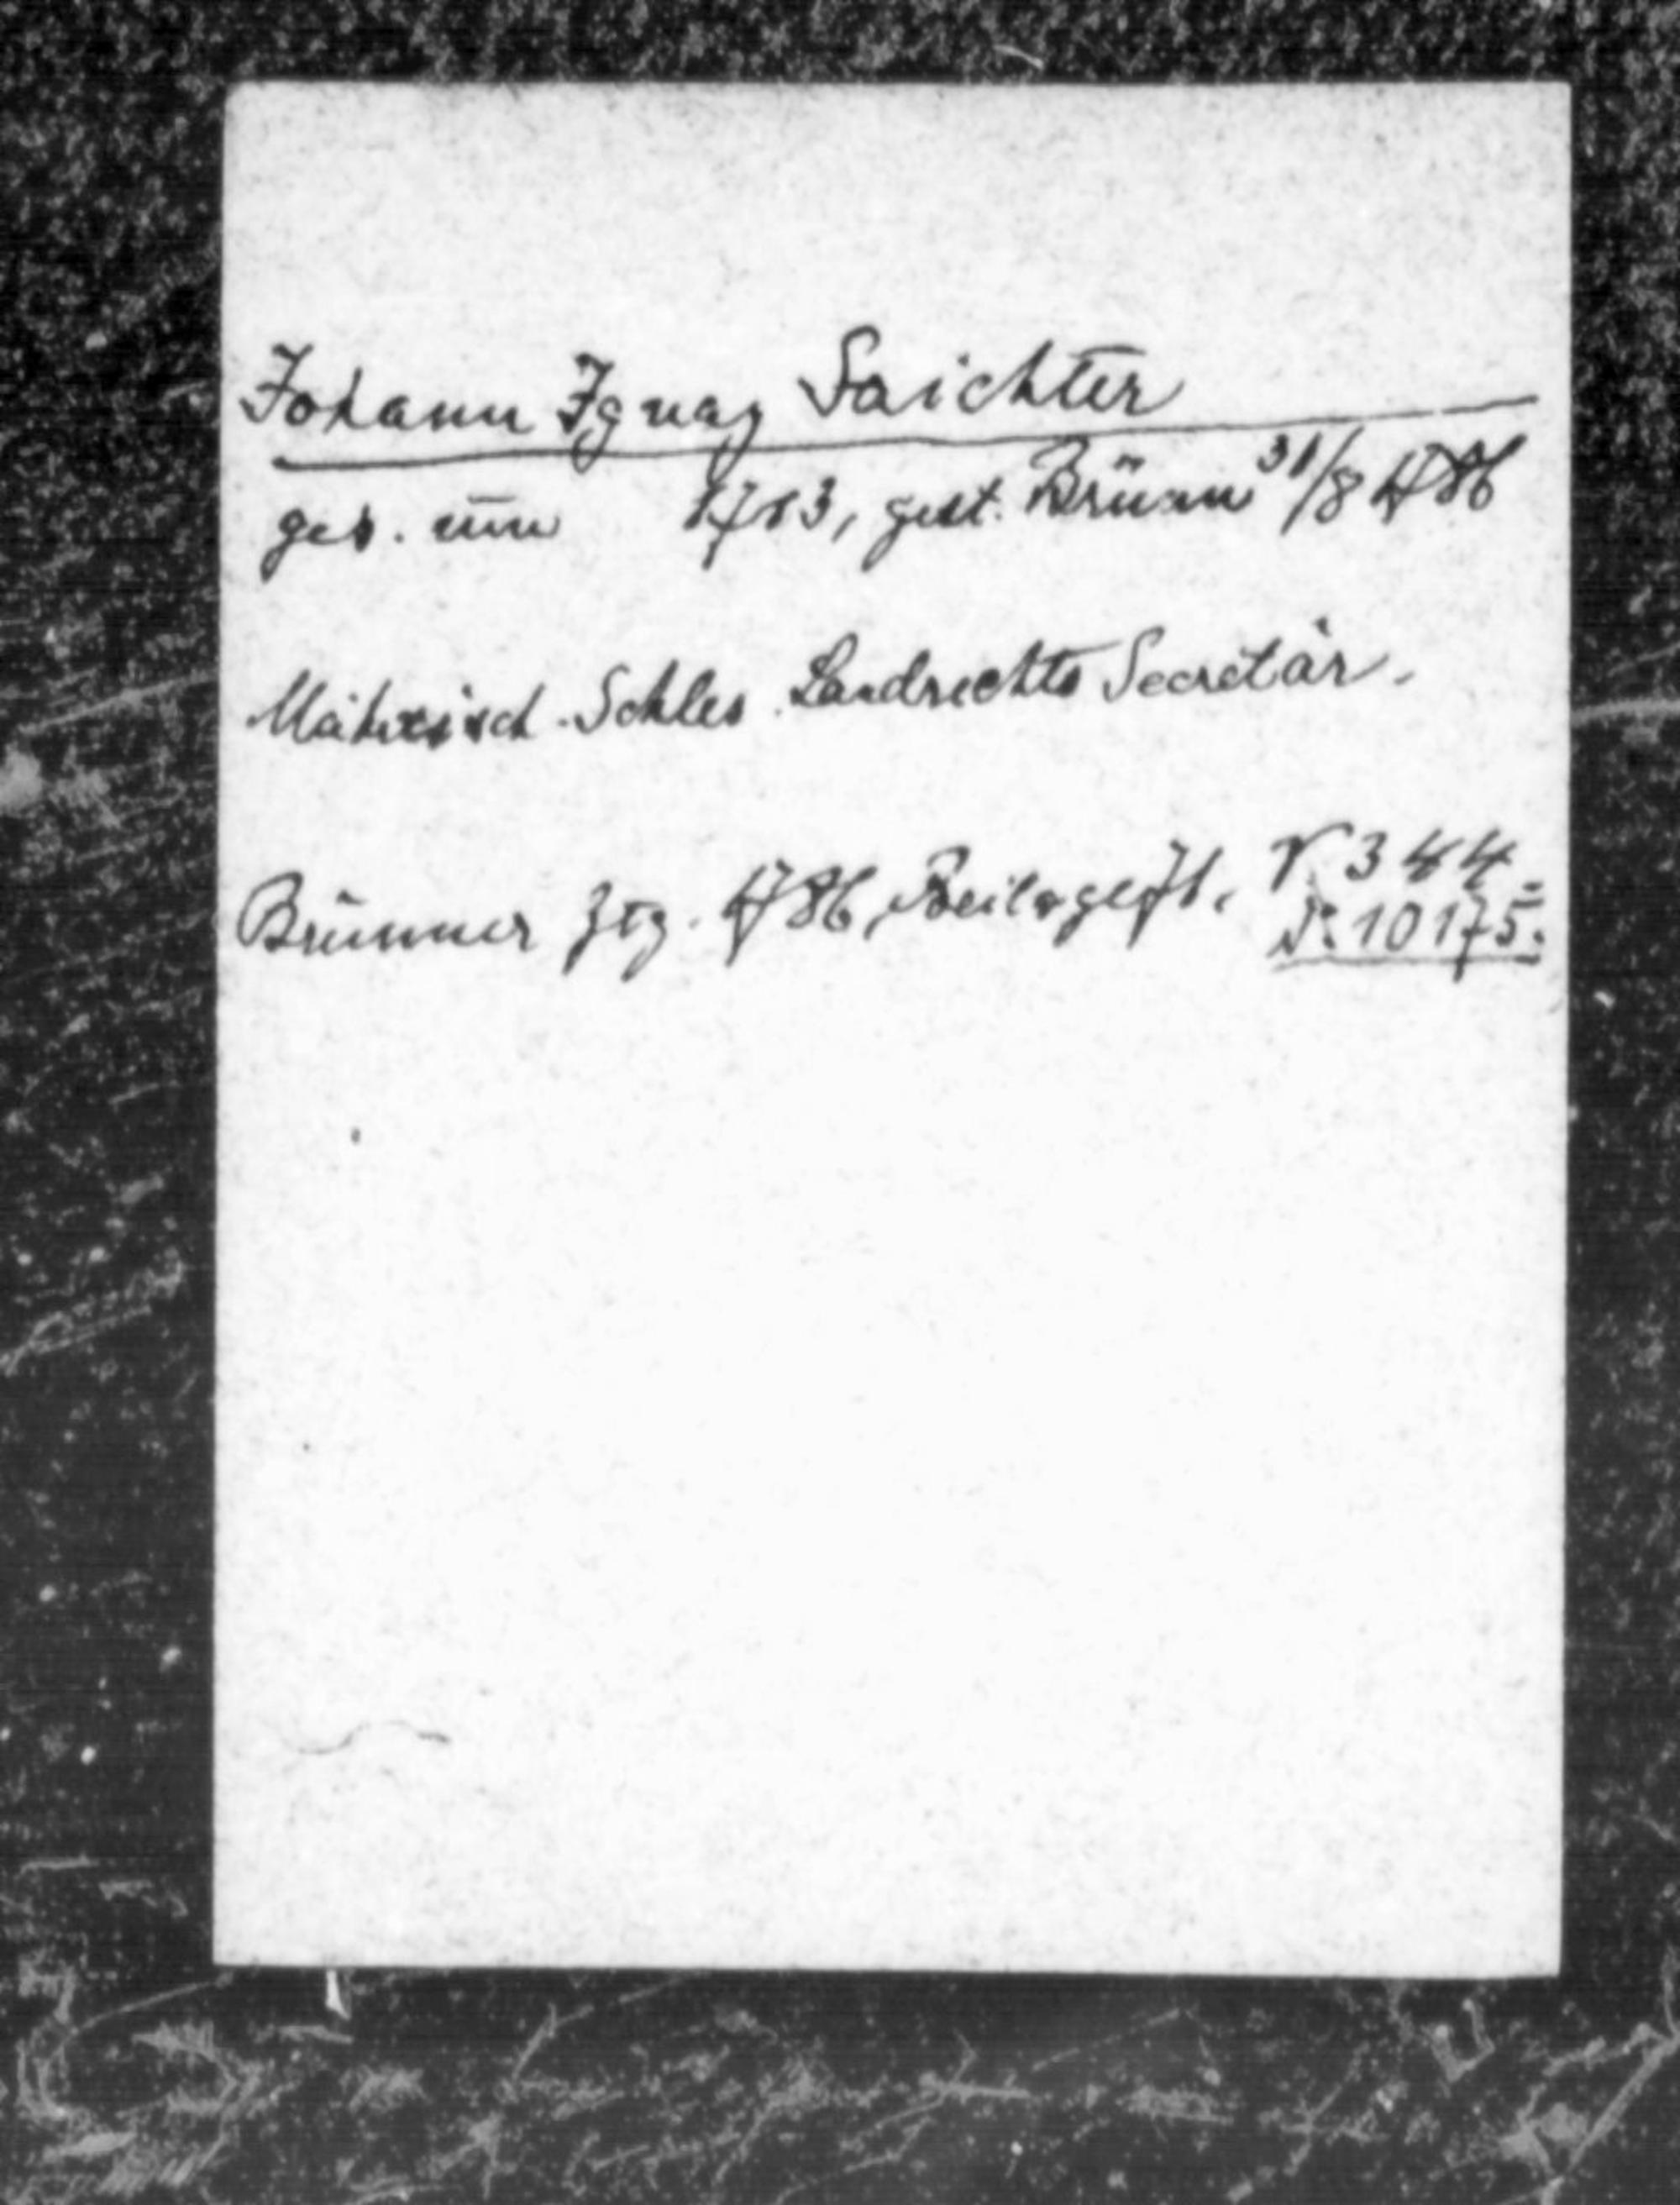 Johann Ignaz Saichter
geb. um 1713, gest. Brünn 31/8 1786
Mährisch-Schles. Landrechts Secretär.
Brünner Ztg. 1786, Beilage 71. V. 344
N: 10175.